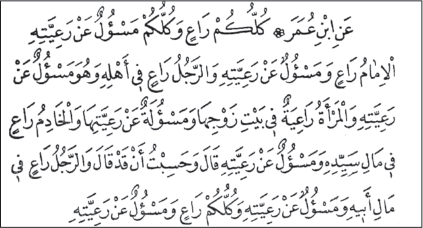 عَنِ ابْنِ عُمَرَ ﷺ كُلُّكُمْ رَاعٍ وَكُلُّكُمْ مَسْؤُلٌ عَنْ رَعِيَّتِهِ
الْاِمَامُ رَاعٍ وَمَسْؤُلٌ عَنْ رَعِيَّتِهِ وَالرَّجُلُ رَاعٍ فِى أَهْلِهِ وَهُوَ مَسْؤُلٌ عَنْ
رَعِيَّتِهِ وَالْمَرْأَةُ رَاعِيَةٌ فِى بَيْتِ زَوْجِهَا وَمَسْؤُلَةٌ عَنْ رَعِيَّتِهَا وَالْخَادِمُ رَاعٍ
فِى مَالِ سَيِّدِهِ وَمَسْؤُلٌ عَنْ رَعِيَّتِهِ قَالَ وَحَسِبْتُ أَنْ قَدْ قَالَ وَالرَّجُلُ رَاعٍ فِى
مَالِ أَبِيهِ وَمَسْؤُلٌ عَنْ رَعِيَّتِهِ وَكُلُّكُمْ رَاعٍ وَمَسْؤُلٌ عَنْ رَعِيَّتِهِ